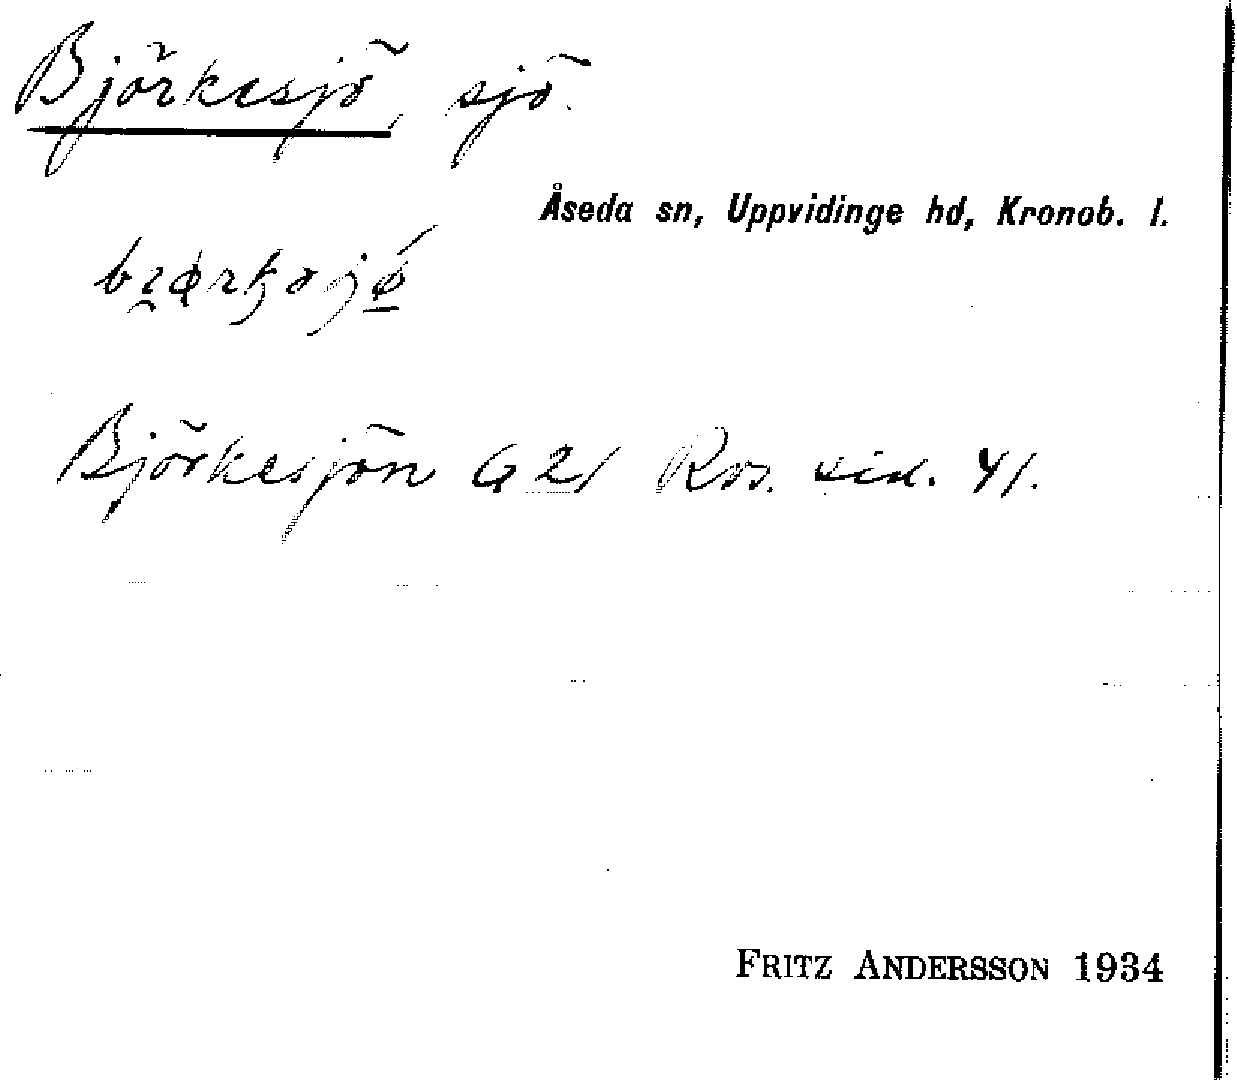 Björkesjö, sjö.
Åseda sn, Uppvidinge hd, Kronob. l.
Björkesjön G 21 sid. 41.
FRITZ ANDERSSON 1934